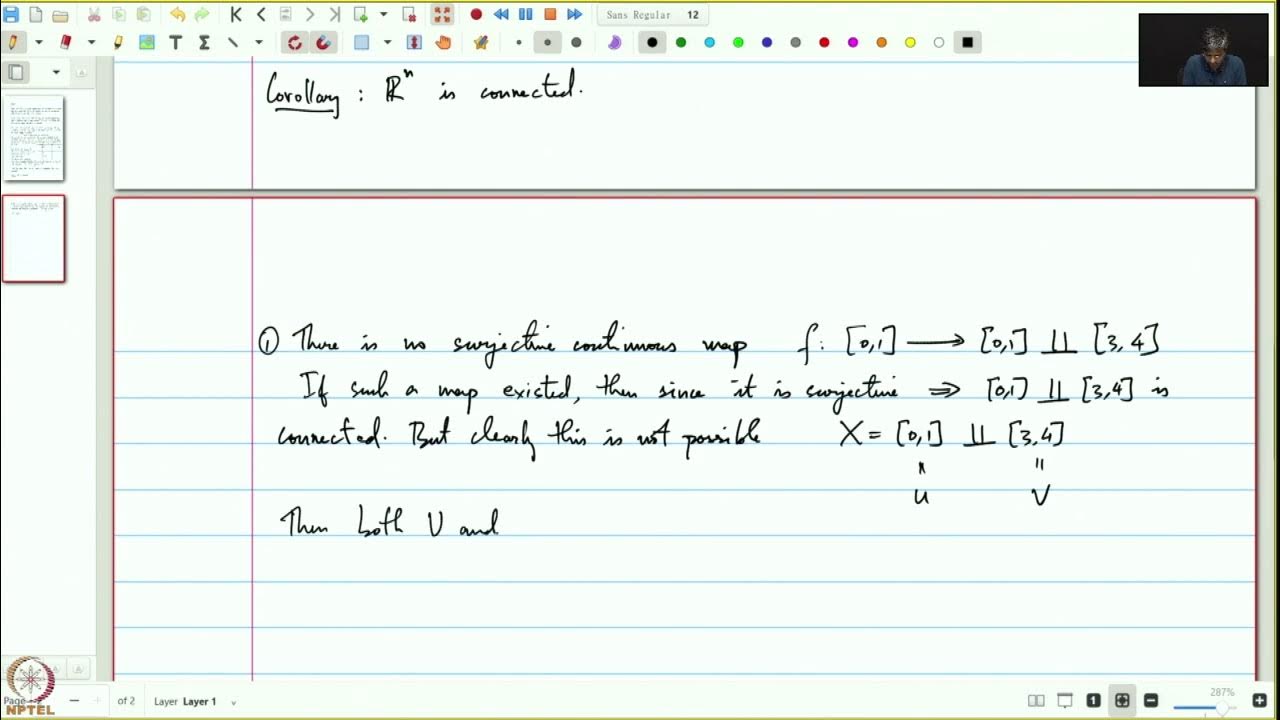 Sans Regular 12
Corollary : ℝⁿ is connected.
① There is no surjective continuous map f: [0,1] ⟶ [0,1] ⨿ [3,4]
If such a map existed, then since it is surjective ⇒ [0,1] ⨿ [3,4] is
connected. But clearly this is not possible X = [0,1] ⨿ [3,4]
" "
U V
Then both U and
Page
of 2 Layer Layer 1
287%
NPTEL